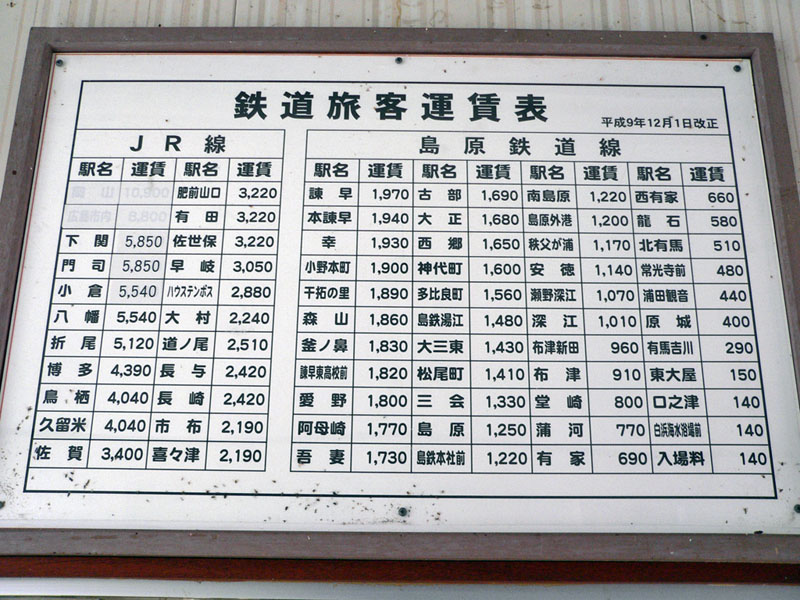 鉄道旅客運賃表
平成9年12月1日改正
JR線
島原鉄道線
駅名 運賃 駅名 運賃 駅名 運賃 駅名 運賃 駅名 運賃 駅名 運賃
岡山 10,900 肥前山口 3,220 諫早 1,970 古部 1,690 南島原 1,220 西有家 660
広島市内 8,800 有田 3,220 本諫早 1,940 大正 1,680 島原外港 1,200 龍石 580
下関 5,850 佐世保 3,220 幸 1,930 西郷 1,650 秩父が浦 1,170 北有馬 510
門司 5,850 早岐 3,050 小野本町 1,900 神代町 1,600 安徳 1,140 常光寺前 480
小倉 5,540 ハウステンボス 2,880 干拓の里 1,890 多比良町 1,560 瀬野深江 1,070 浦田観音 440
八幡 5,540 大村 2,240 森山 1,860 島鉄湯江 1,480 深江 1,010 原城 400
折尾 5,120 道ノ尾 2,510 釜ノ鼻 1,830 大三東 1,430 布津新田 960 有馬吉川 290
博多 4,390 長与 2,420 諫早東高校前 1,820 松尾町 1,410 布津 910 東大屋 150
鳥栖 4,040 長崎 2,420 愛野 1,800 三会 1,330 堂崎 800 口之津 140
久留米 4,040 市布 2,190 阿母崎 1,770 島原 1,250 蒲河 770 白浜海水浴場前 140
佐賀 3,400 喜々津 2,190 吾妻 1,730 島鉄本社前 1,220 有家 690 入場料 140